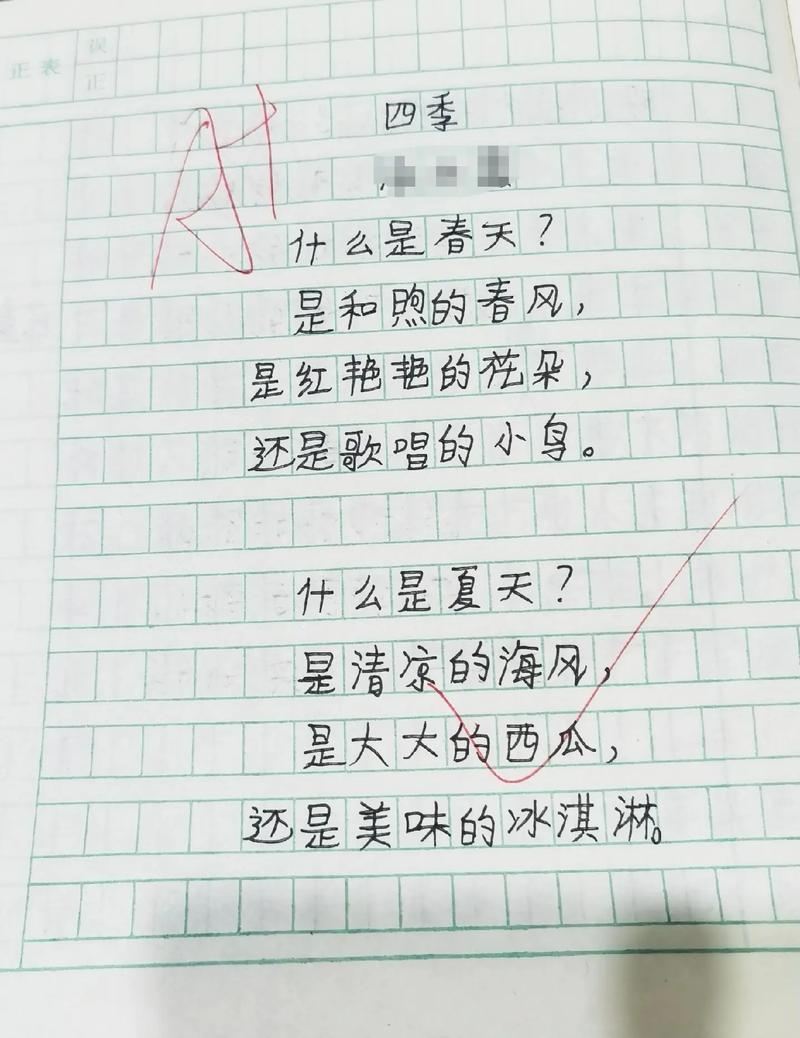 误
正表
正
四季
什么是春天？
是和煦的春风，
是红艳艳的花朵，
还是歌唱的小鸟。
什么是夏天？
是清凉的海风，
是大大的西瓜，
还是美味的冰淇淋。